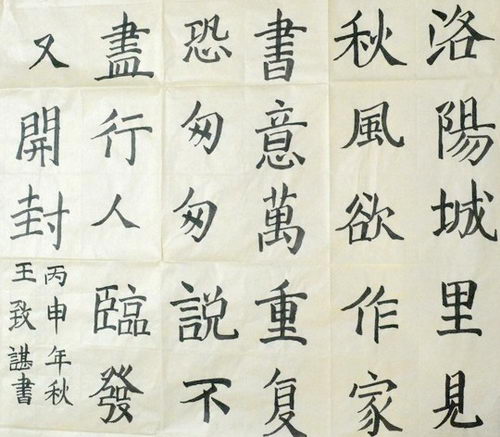 洛陽城里見
秋風欲作家
書意萬重复
恐匆匆説不
盡行人臨發
又開封
丙申年秋
王致諶書